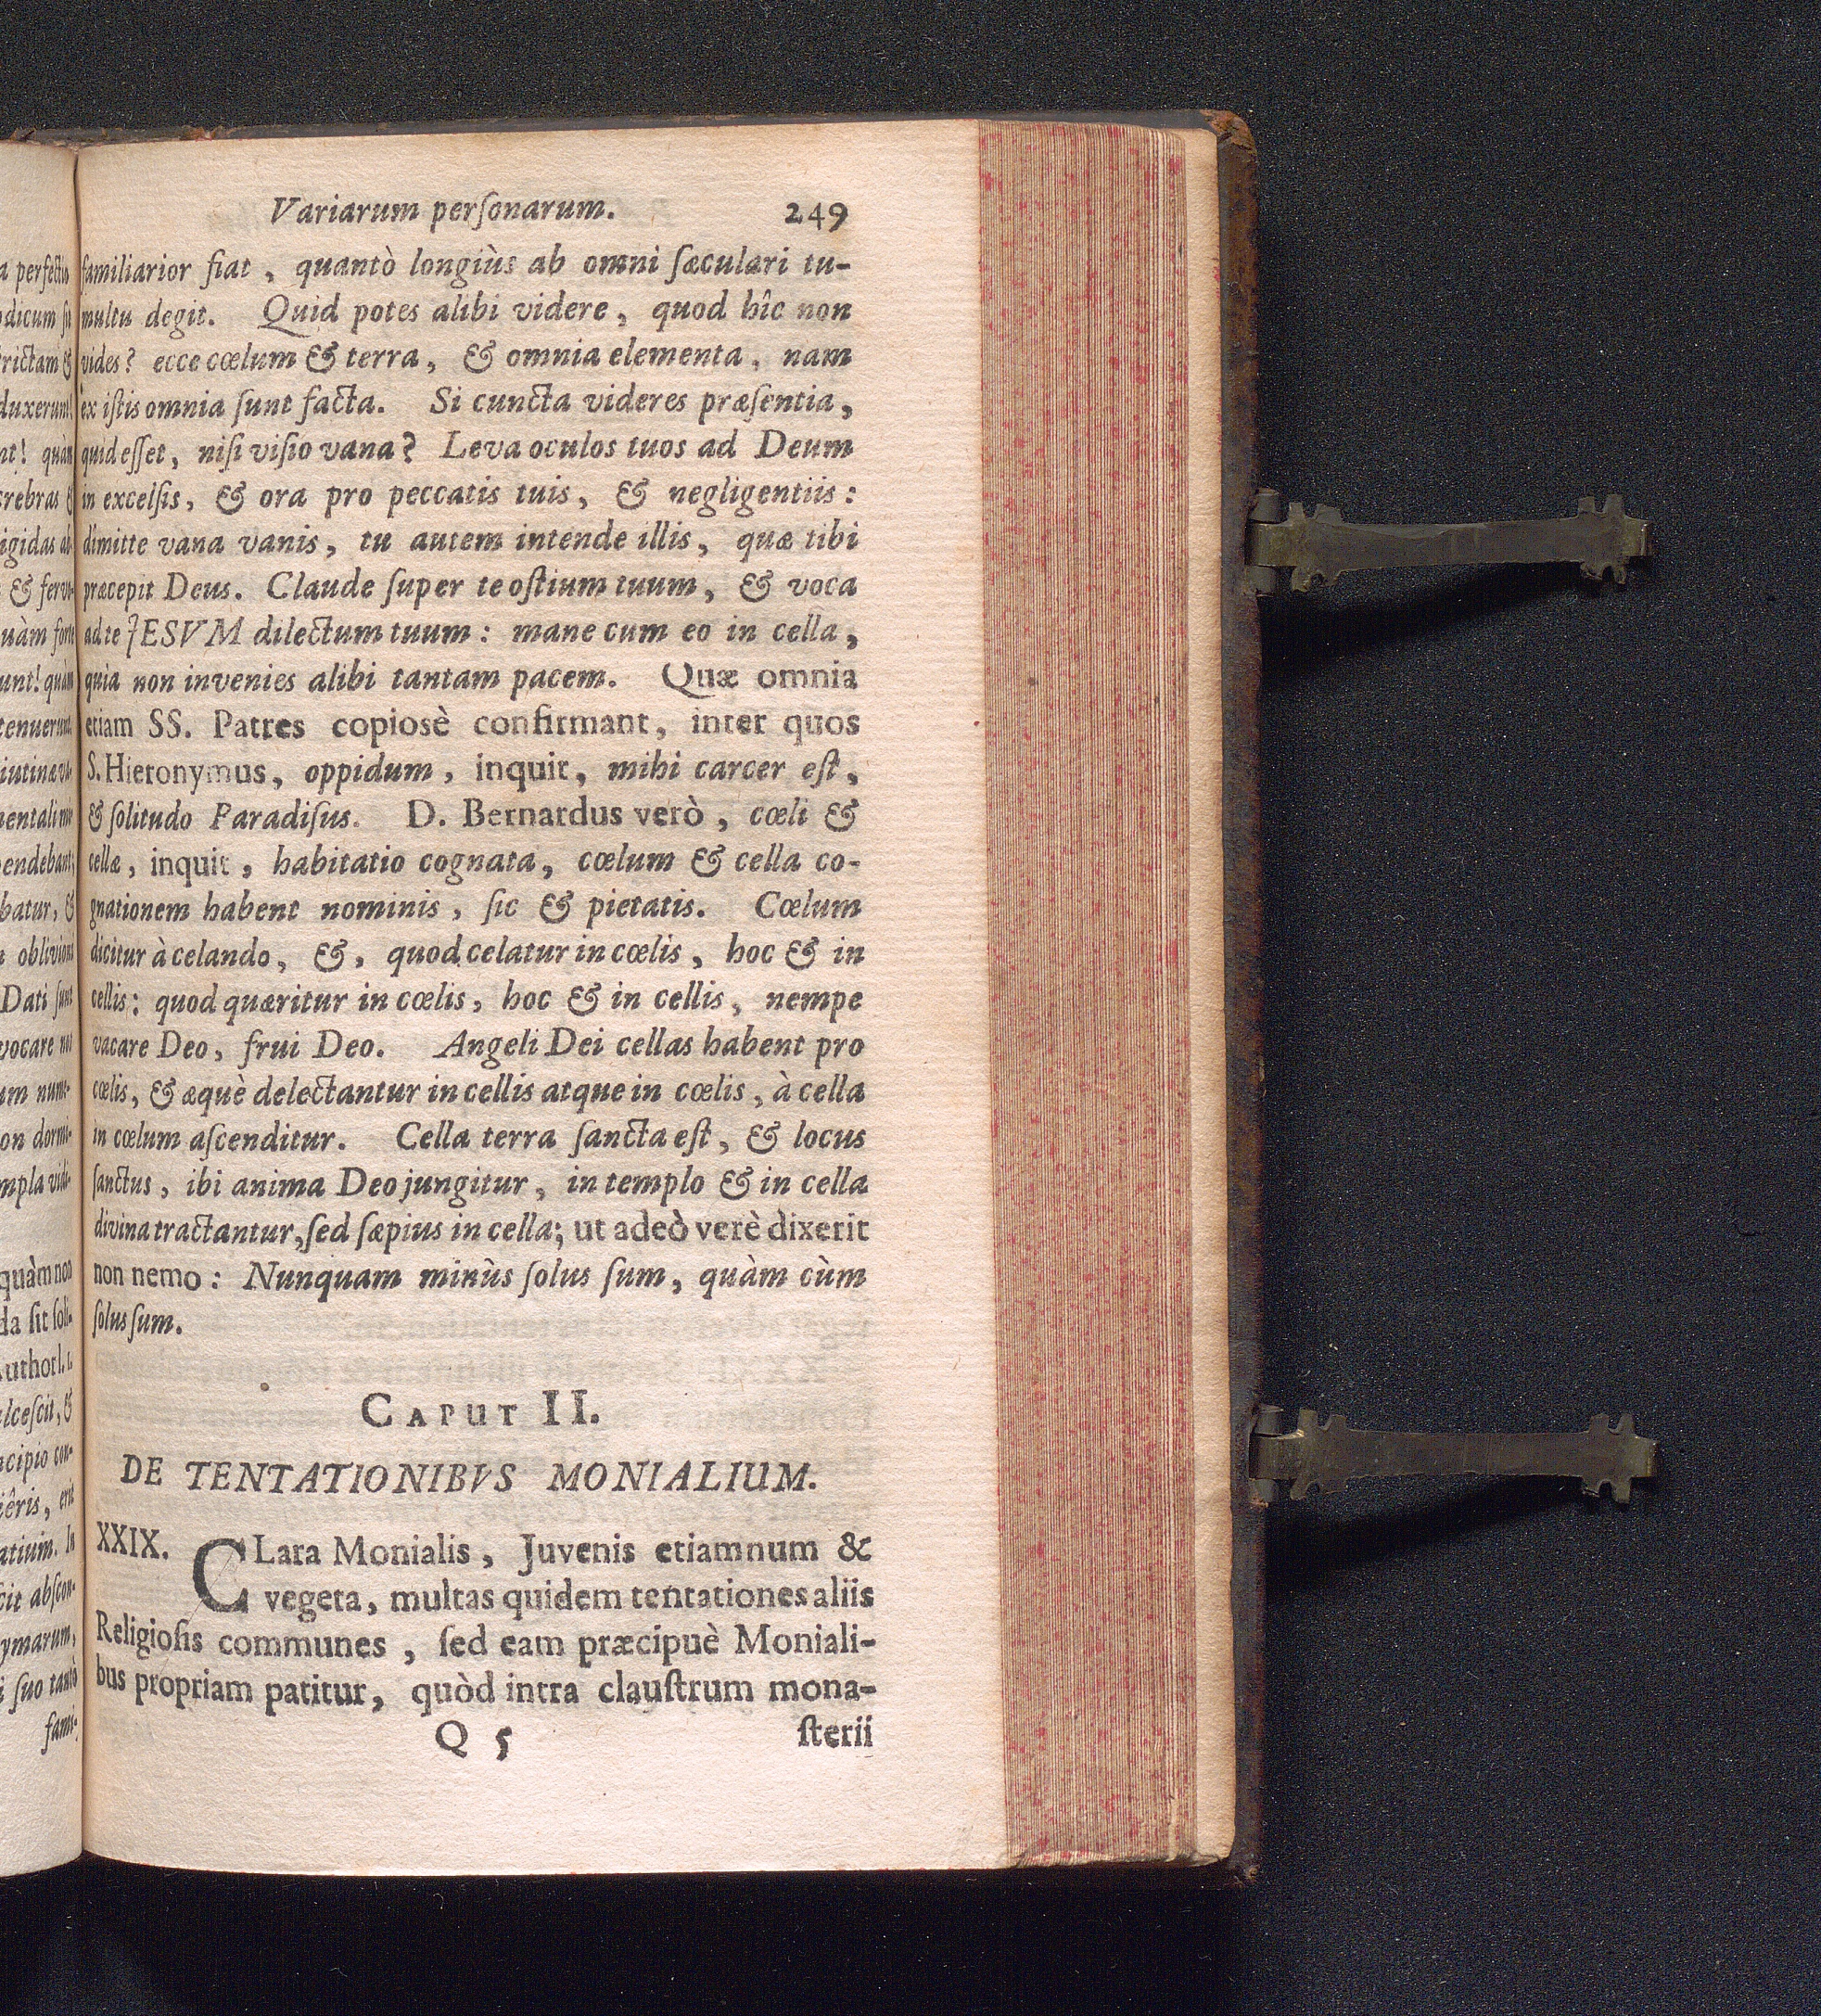 Variarum perſonarum. 249
familiarior fiat, quantò longiùs ab omni ſæculari tu-
multu degit. Quid potes alibi videre, quod hîc non
vides? ecce cœlum & terra, & omnia elementa, nam
ex iſtis omnia ſunt facta. Si cuncta videres præſentia,
quid eſſet, niſi viſio vana? Leva oculos tuos ad Deum
in excelſis, & ora pro peccatis tuis, & negligentiis:
dimitte vana vanis, tu autem intende illis, quæ tibi
præcepit Deus. Claude ſuper te oſtium tuum, & voca
ad te JESVM dilectum tuum: mane cum eo in cella,
quia non invenies alibi tantam pacem. Quæ omnia
etiam SS. Patres copiosè confirmant, inter quos
S. Hieronymus, oppidum, inquit, mihi carcer eſt,
& ſolitudo Paradiſus. D. Bernardus verò, cœli &
cellæ, inquit, habitatio cognata, cœlum & cella co-
gnationem habent nominis, ſic & pietatis. Cœlum
dicitur à celando, &, quod celatur in cœlis, hoc & in
cellis: quod quæritur in cœlis, hoc & in cellis, nempe
vacare Deo, frui Deo. Angeli Dei cellas habent pro
cœlis, & æquè delectantur in cellis atque in cœlis, à cella
in cœlum aſcenditur. Cella terra ſancta eſt, & locus
ſanctus, ibi anima Deo jungitur, in templo & in cella
divina tractantur, ſed ſæpius in cella; ut adeò verè dixerit
non nemo: Nunquam minùs ſolus ſum, quàm cùm
ſolus ſum.
CAPUT II.
DE TENTATIONIBVS MONIALIUM.
XXIX. CLara Monialis, Juvenis etiamnum &
vegeta, multas quidem tentationes aliis
Religioſis communes, ſed eam præcipuè Moniali-
bus propriam patitur, quòd intra clauſtrum mona-
Q 5 ſterii